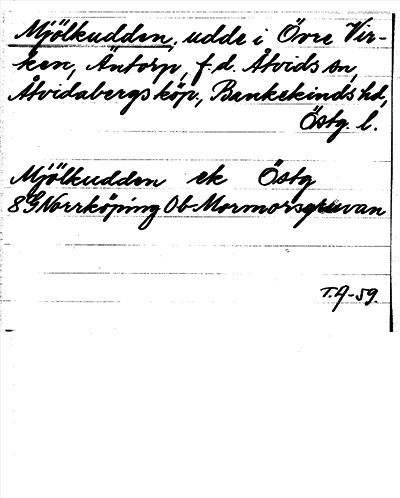 Mjölkudden, udde i Övre Vir-
ken, Äntorp, f.d. Åtvids sn,
Åtvidabergs köp., Bankekinds hd,
Östg. l.
Mjölkudden ek Östg
8G Norrköping 0b Mormorsgruvan
T.A-59.